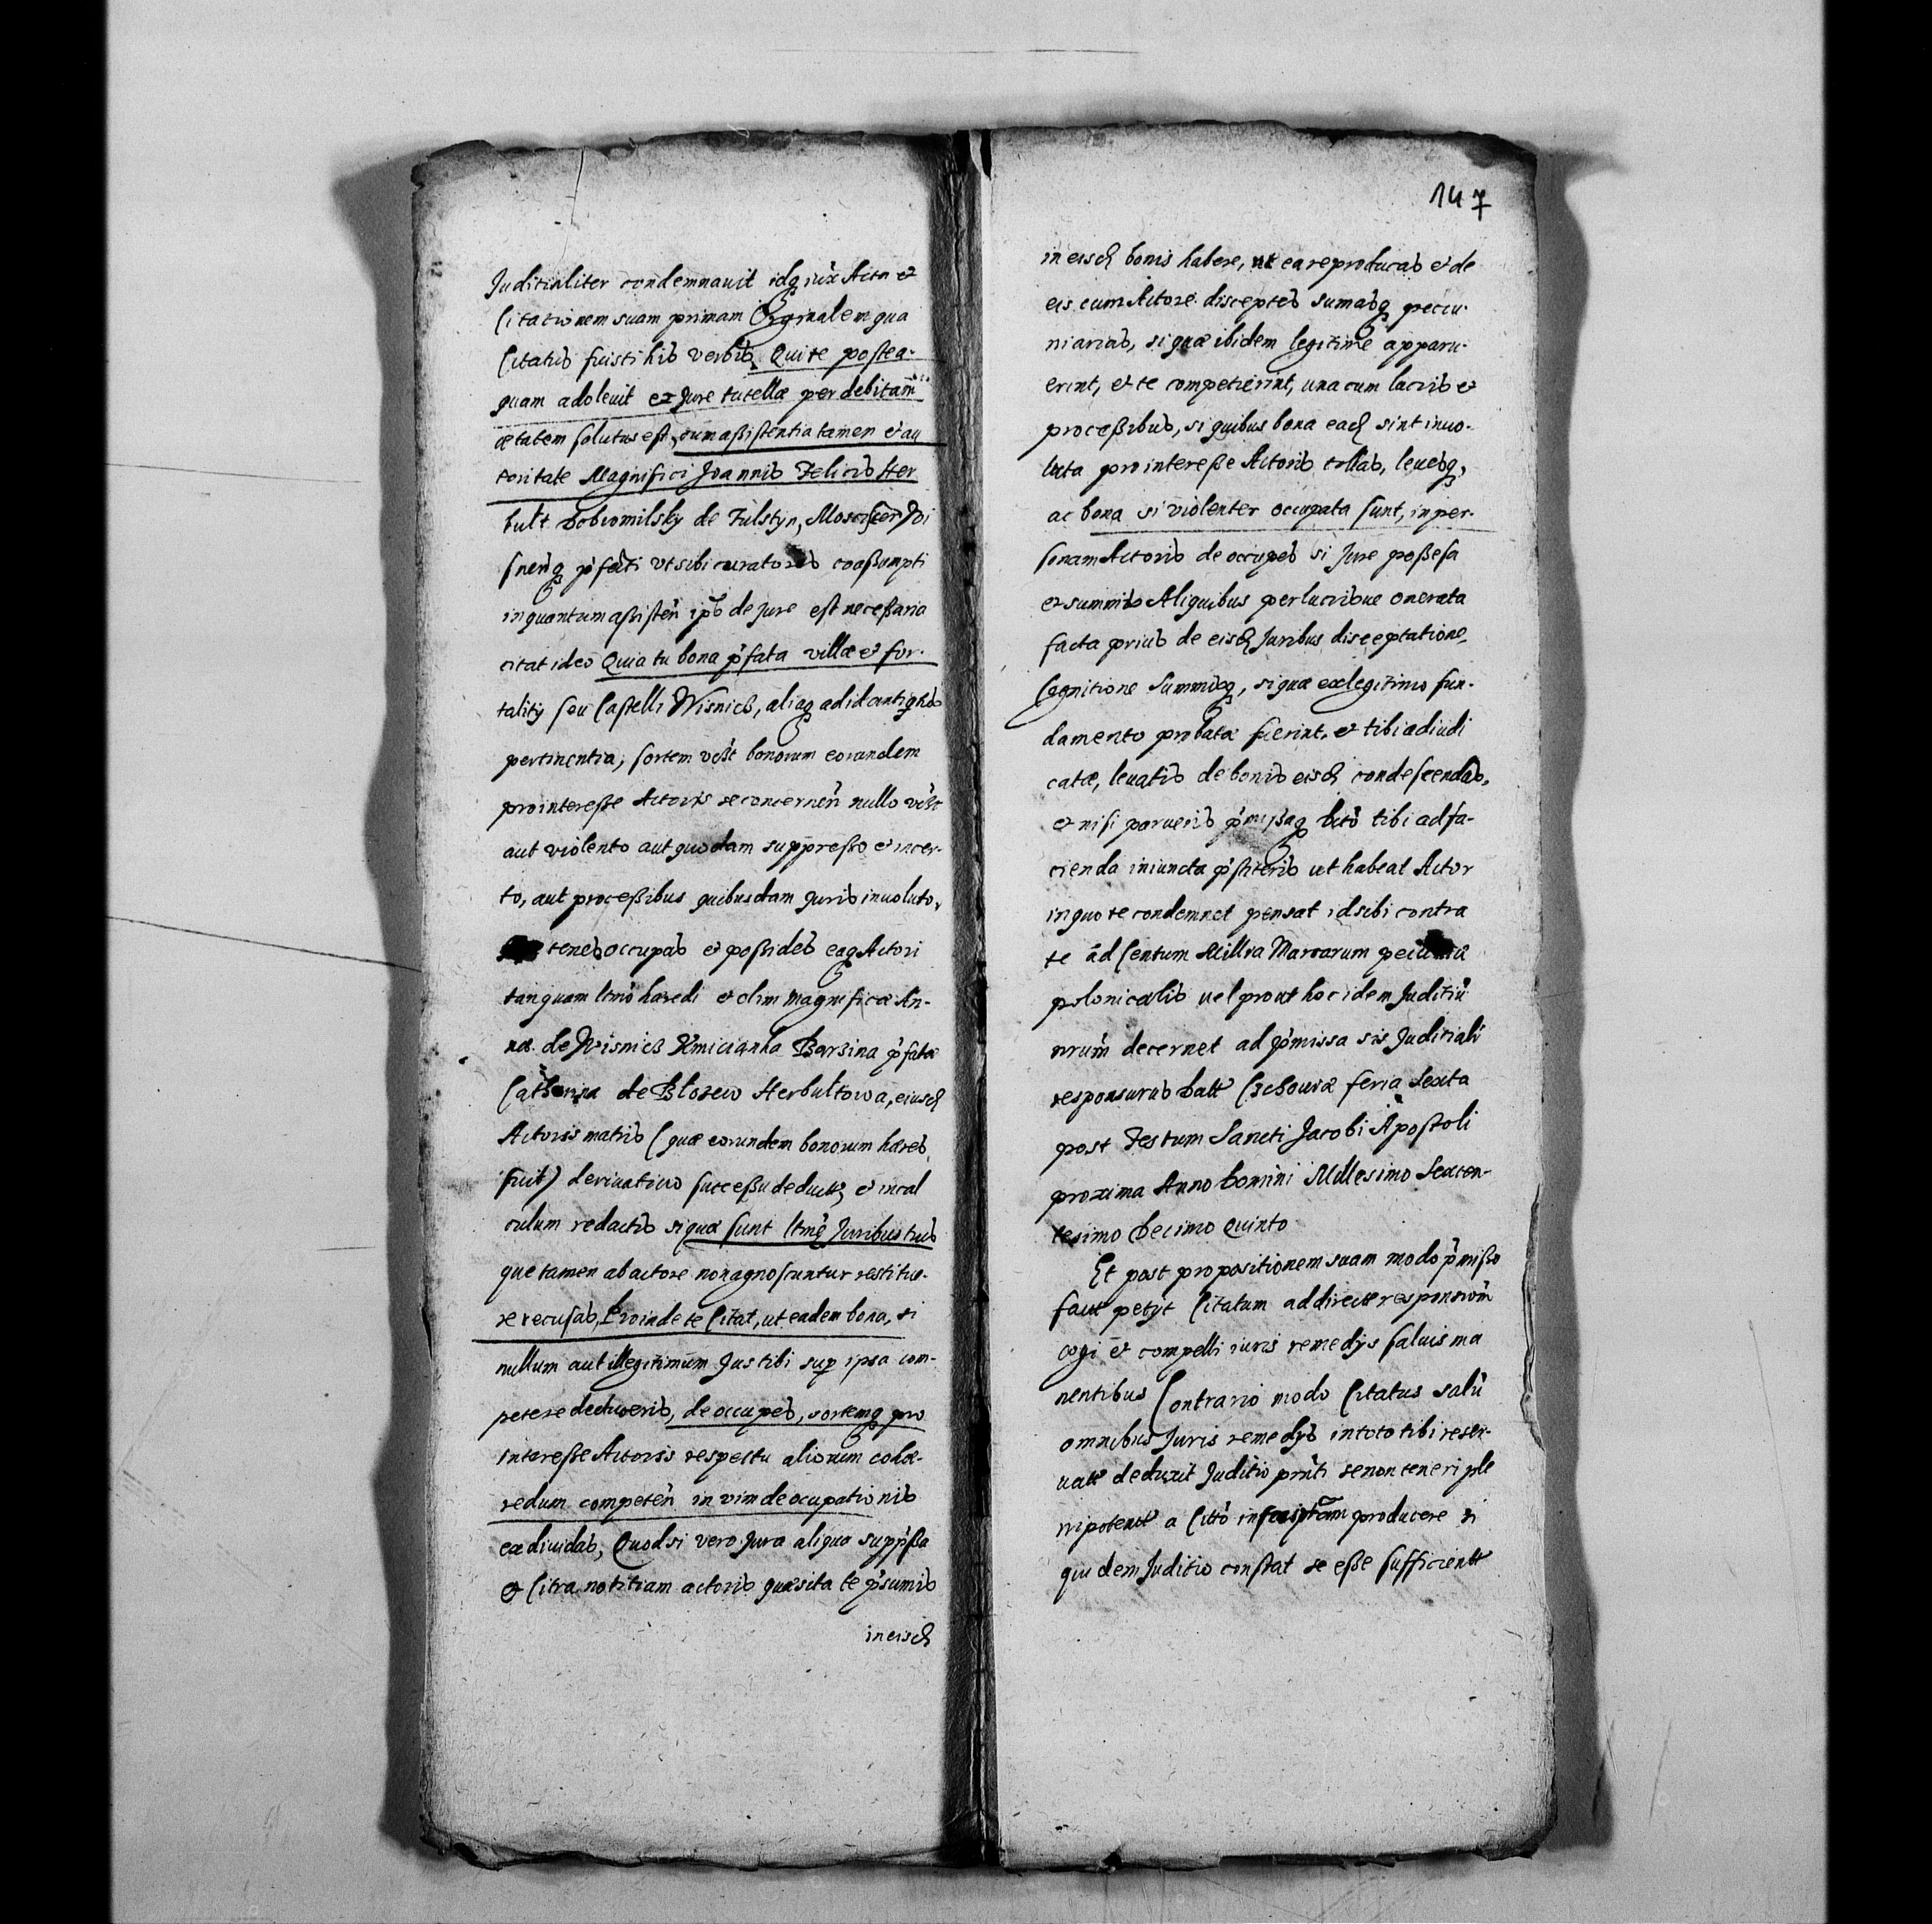 Juditialiter condemnauit idq iux Acta et
Citationem suam primam Orginalem qua
Citatus fuisti his verbis, Qui te postea-
quam adoleuit ex Jure tutellæ per debitam
ætatem solutus est, cum assistentia tamen et au
toritate Magnifici Joannis Felicis Her
bult Dobromilsky de Fulstyn, Moscicen Wi
snenq pfecti ut sibi curatoris coassumpti
inquantum assisten ips de Jure est necessaria
citat ideo Quia tu bona pfata villæ et for-
tality seu Castelli Wisnicz, aliaq ad id antiqtus
pertinentia, sortem vest bonorum eorundem
pro interesse Actoris se concernen nullo vest
aut violento aut quodam suppresso et incer-
to, aut processibus quibusdam Juris inuoluto,
tenes occupas et possides eaq Actori
tanquam ltmo hæredi et olim Magnificæ An-
næ de Wisnicz Kmicianka Barzina pfatæ
Catherina de Blozew Herbultowa, eiusd
Actoris matris (quæ eorundem bonorum hæres
fuit) deriuatiuo successu deductis, et incal
culum redactis si quæ sunt ltmis Juribus tuis
que tamen ab actore non agnoscuntur restitue-
re recusas, Proinde te Citat, ut eadem bona, si
nullum aut illegitimum Jus tibi sup ipsa com-
petere deduxeris, de occupes, sortemq pro
interesse Actoris respectu aliorum cohæ-
redum competen in vim deocupationis
ex diuidas, Quod si vero Jura aliqua suppssa
et Citra notitiam actoris quæsita te psumis
in eisd
147
in eisd bonis habere, ut ea reproducas et de
eis cum Actore disceptes sumasq peccu-
niarias, si quæ ibidem legitime apparu-
erint, et te competierint, una cum lucris et
processibus, si quibus bona ead sint inuo-
luta pro interesse Actoris tollas, leuesq,
ac bona si violenter occupata sunt, in per-
sonam Actoris de occupes si Jure possessa
et summis Aliquibus per lucribue onerata
facta prius de eisd Juribus disceptatione,
Cognitione Summisq, si quæ ex legitimo fun-
damento probatæ fuerint, et tibi adiudi
catæ, leuatis de bonis eisd condescendas,
et nisi parueris pmissaq tibi ad fa-
cienda iniuncta pstiteris ut habeat Actor
in quo te condemnet pensat id sibi contra
te ad Centum Millia Marcarum pecuniæ
polonicalis uel prout hoc idem Juditiu
nrum decernet ad pmissa sis Juditiali
responsurus Datt Czchouiæ feria Sexta
post Festum Sancti Jacobi Apostoli
proxima Anno Domini Millesimo Sexcen-
tesimo Decimo Quinto
Et post propositionem suam modo pmisso
fact petyt Citatum ad directe responsion
cogi et compelli iuris remedys saluis ma
nentibus Contrario modo Citatus saluis
omnibus Juris remedys in toto tibi reser-
uatt deduxit Juditio pnti se non teneri ple
nipotent a Citto inscriptam producere si
quidem Juditio constat se esse sufficientt